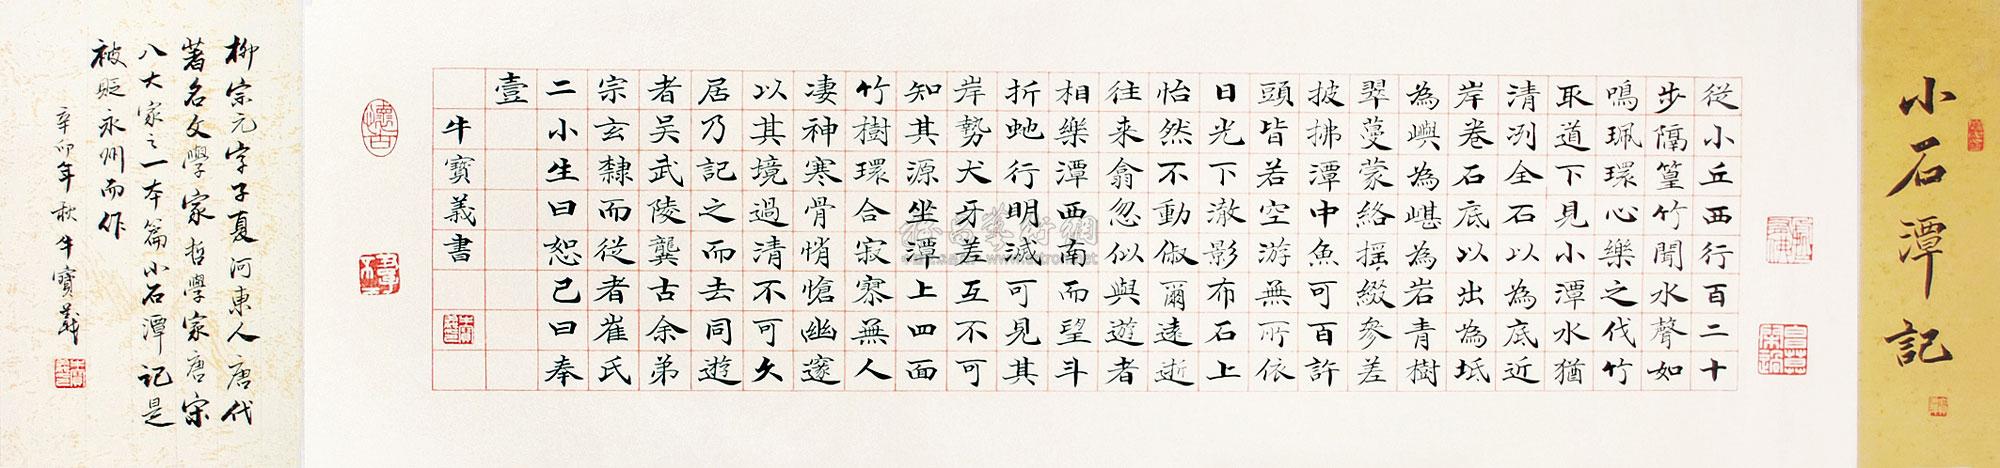 小石潭記
從小丘西行百二十
步隔篁竹聞水聲如
鳴珮環心樂之伐竹
取道下見小潭水猶
清冽全石以為底近
岸卷石底以出為坻
為嶼為嵁為岩青樹
翠蔓蒙絡摇綴參差
披拂潭中魚可百許
頭皆若空游無所依
日光下澈影布石上
怡然不動俶爾遠逝
往来翕忽似與遊者
相樂潭西南而望斗
折虵行明滅可見其
岸勢犬牙差互不可
知其源坐潭上四面
竹樹環合寂寥無人
凄神寒骨悄愴幽邃
以其境過清不可久
居乃記之而去同遊
者吳武陵龔古余弟
宗玄隸而從者崔氏
二小生曰恕己曰奉
壹
牛寶義書
柳宗元字子夏河東人唐代
著名文學家哲學家唐宋
八大家之一本篇小石潭記是
被贬永州而作
辛卯年秋牛寶義